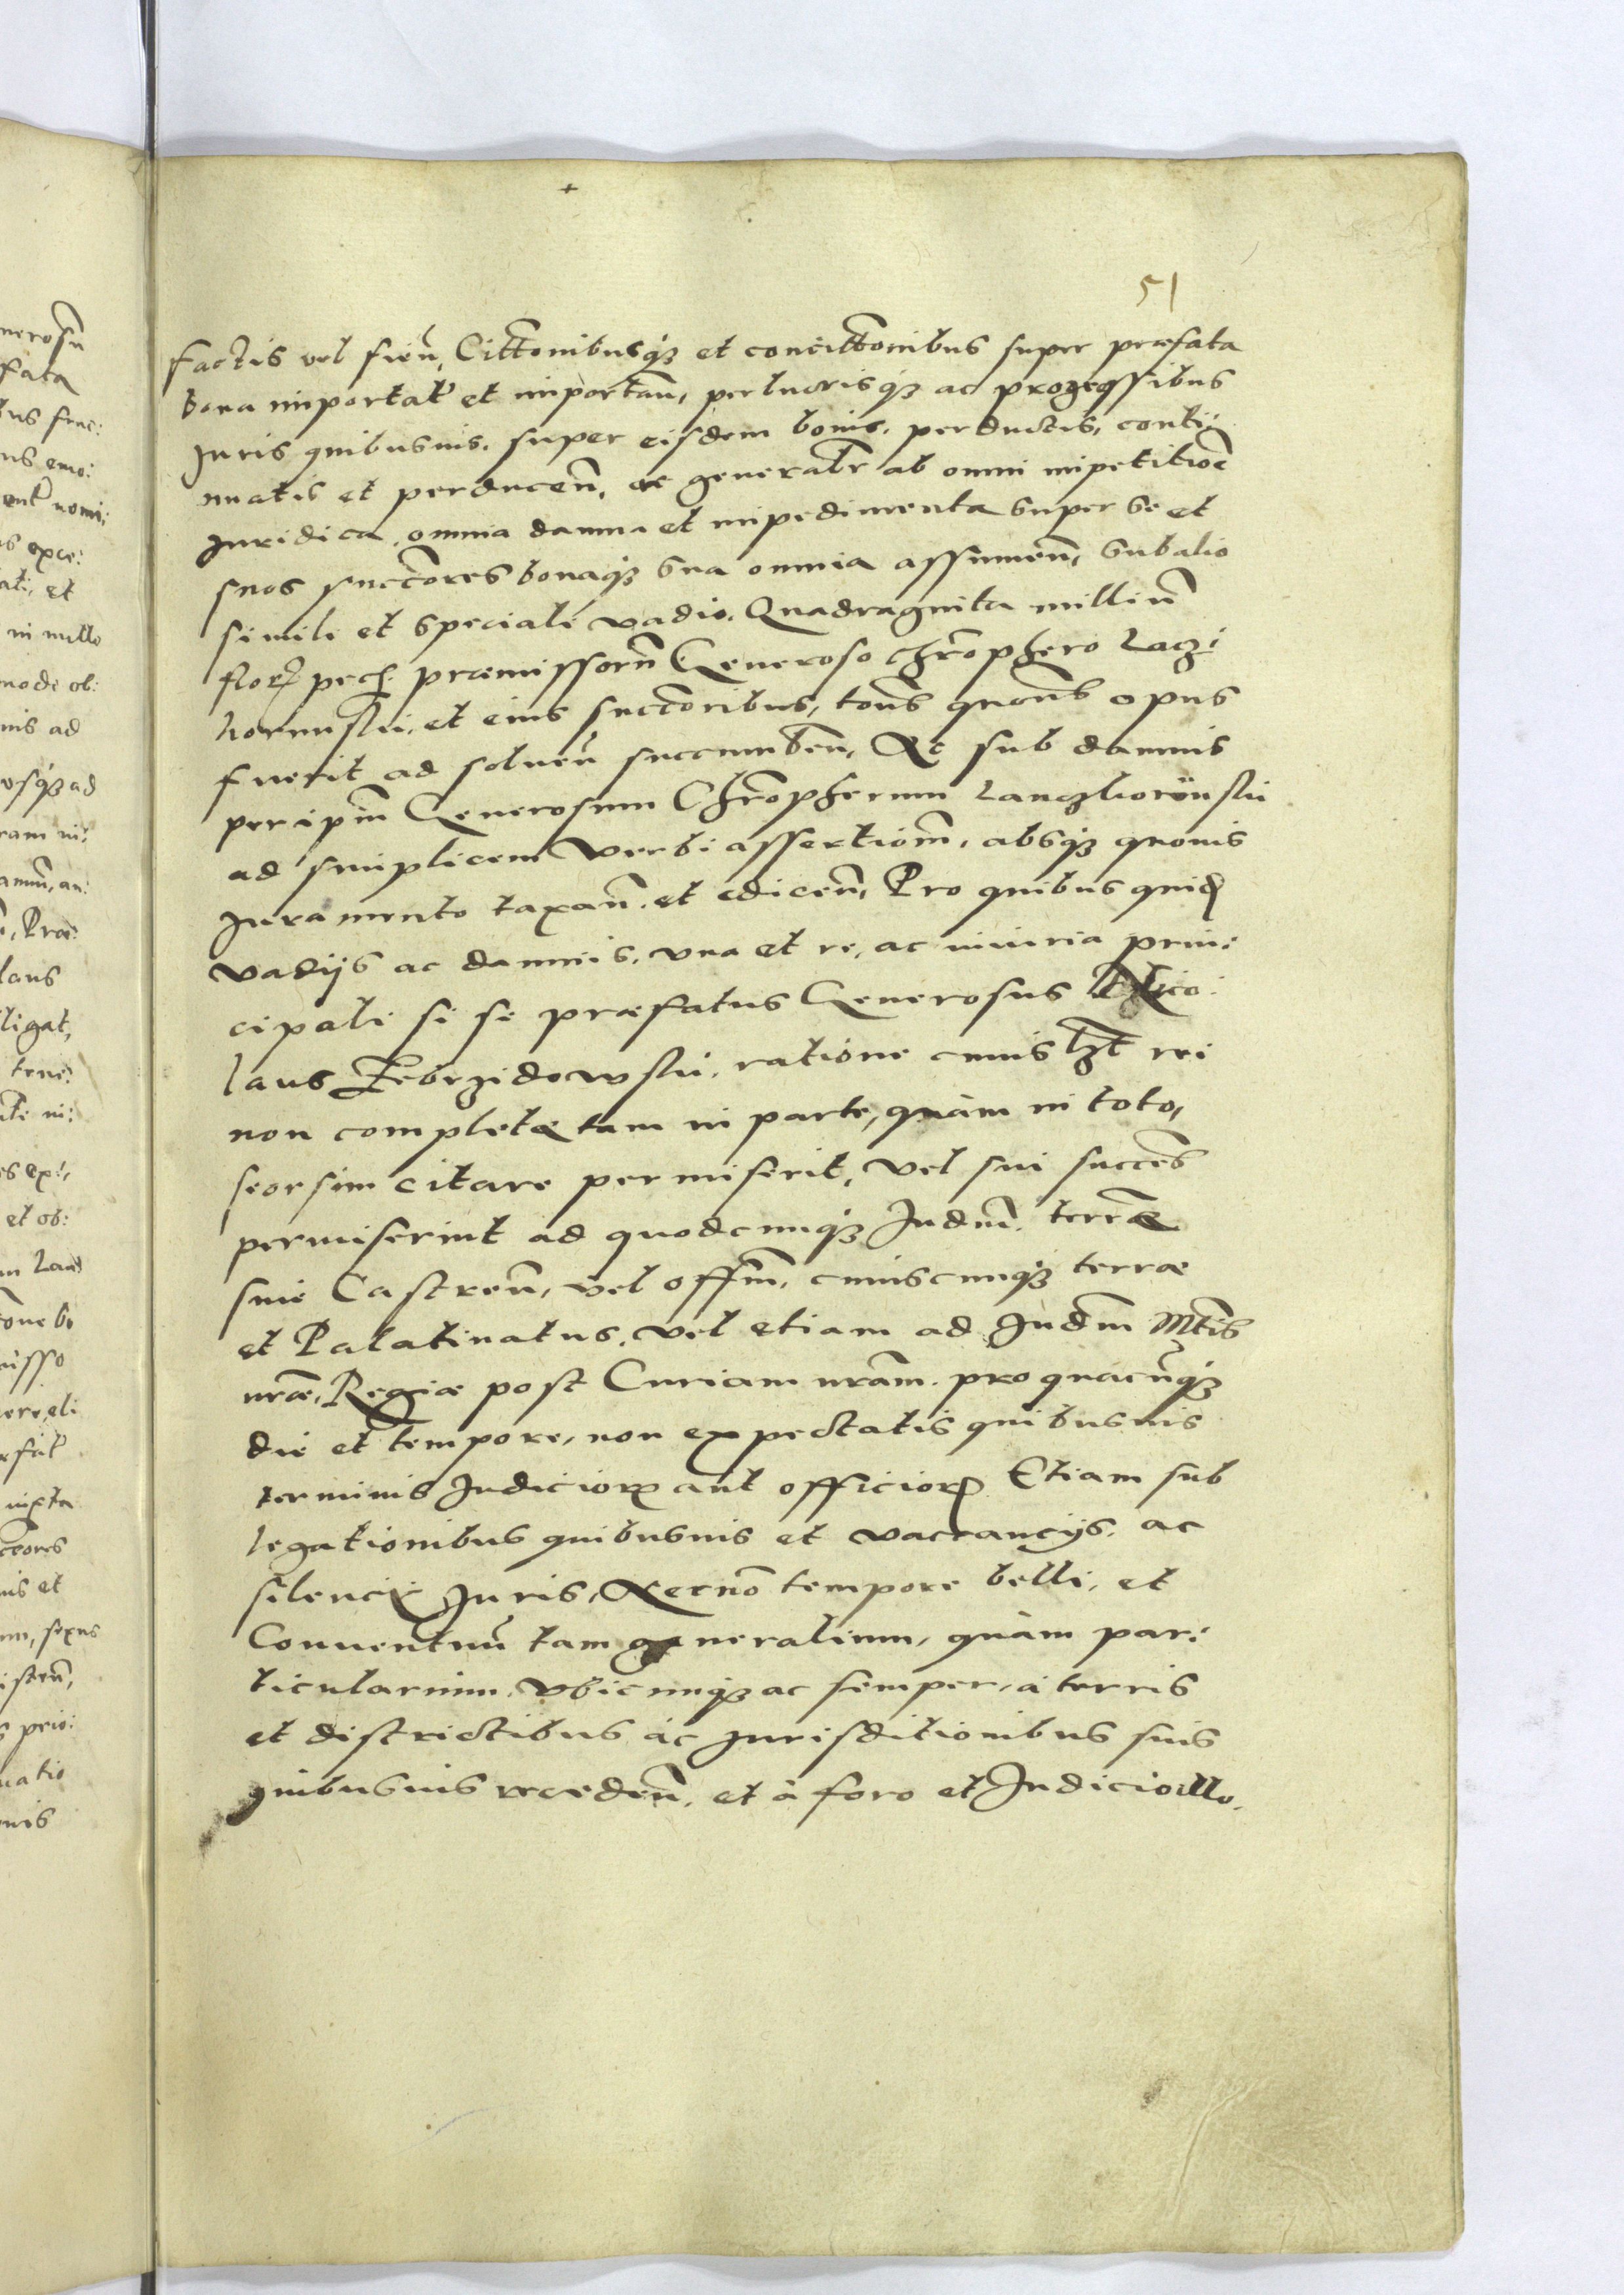 51
factis vel fieñ, Cittõnibusq́ꝫ et concittõnibus super præfata
bona importat̃ et importañ, perlucrisq́ꝫ ac progressibus
Iuris quibusuis, super eisdem bonis, perductis, conti:
nuatis et perduceñ, ac generalr̃ ab omni impetitiõe
Iuridica, omnia damna et impedimenta super se et
suos succc̃ores bonaq́ꝫ sua omnia assumeñ, Sub alio
simili et speciali vadio, Quadraginta milliũ
florꝫ pecꝫ præmissorũ Generoso Chr̃ophero Laczi
horunskii, et eius succc̃oribus, totiẽs quotiẽs opus
fuerit ad solueñ succumbeñ, Ac sub damnis
per ip̃m Generosum Chr̃opherum Lanczhorünskii
ad simplicem Verbi assertiõm, absq́ꝫ quouis
Iuramento taxañ, et ediceñ, Pro quibus quidꝫ
vadijs ac damnis, vna et re, ac iniuria prin:
cipali si se præfatus Generosus Nico:
laus Zebrzidowskii, ratione cuius lꝫt rei
non completæ tam in parte, quàm in toto,
seorsim citare permiserit, vel sui succc̃es
permiserint ad quodcunq́ꝫ Iudm̃, terrĕ
siue Castreñ, vel offm̃, cuiuscunq́ꝫ terræ
et Palatinatus, vel etiam ad Iudm̃ Mt̃is
nr̃æ, Regiæ post Curiam nr̃am, pro quacũq́ꝫ
die et tempore, non expectatis quibusuis
terminis Iudiciorꝫ aut officiorꝫ Etiam sub
legationibus quibusuis et vaccancijs, ac
silencij Iuris, Necnõ tempore belli, et
Conuentuũ tam generalium, quàm par:
ticularium, Vbicunq́ꝫ ac semper, à terris
et districtibus ac Iurisditionibus suis
quibusuis recedeñ, et à foro et Iudicio illo,